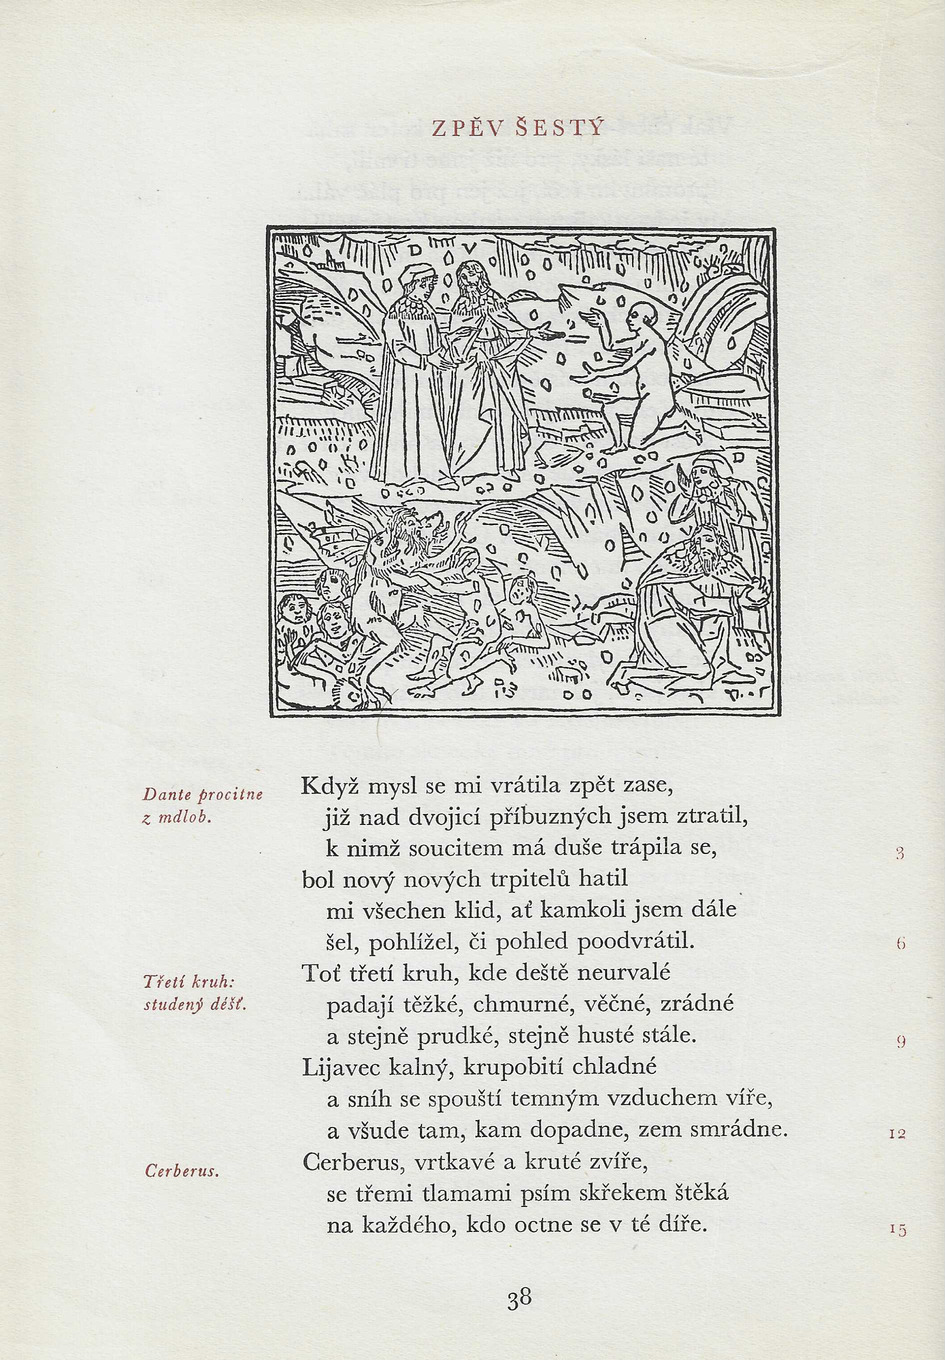 ZPĚV ŠESTÝ
D V
Dante procitne
z mdlob.
Když mysl se mi vrátila zpět zase,
již nad dvojicí příbuzných jsem ztratil,
k nimž soucitem má duše trápila se,
3
bol nový nových trpitelů hatil
mi všechen klid, ať kamkoli jsem dále
šel, pohlížel, či pohled poodvrátil.
6
Třetí kruh:
studený déšť.
Toť třetí kruh, kde deště neurvalé
padají těžké, chmurné, věčné, zrádné
a stejně prudké, stejně husté stále.
9
Lijavec kalný, krupobití chladné
a sníh se spouští temným vzduchem víře,
a všude tam, kam dopadne, zem smrádne.
12
Cerberus.
Cerberus, vrtkavé a kruté zvíře,
se třemi tlamami psím skřekem štěká
na každého, kdo octne se v té díře.
15
38